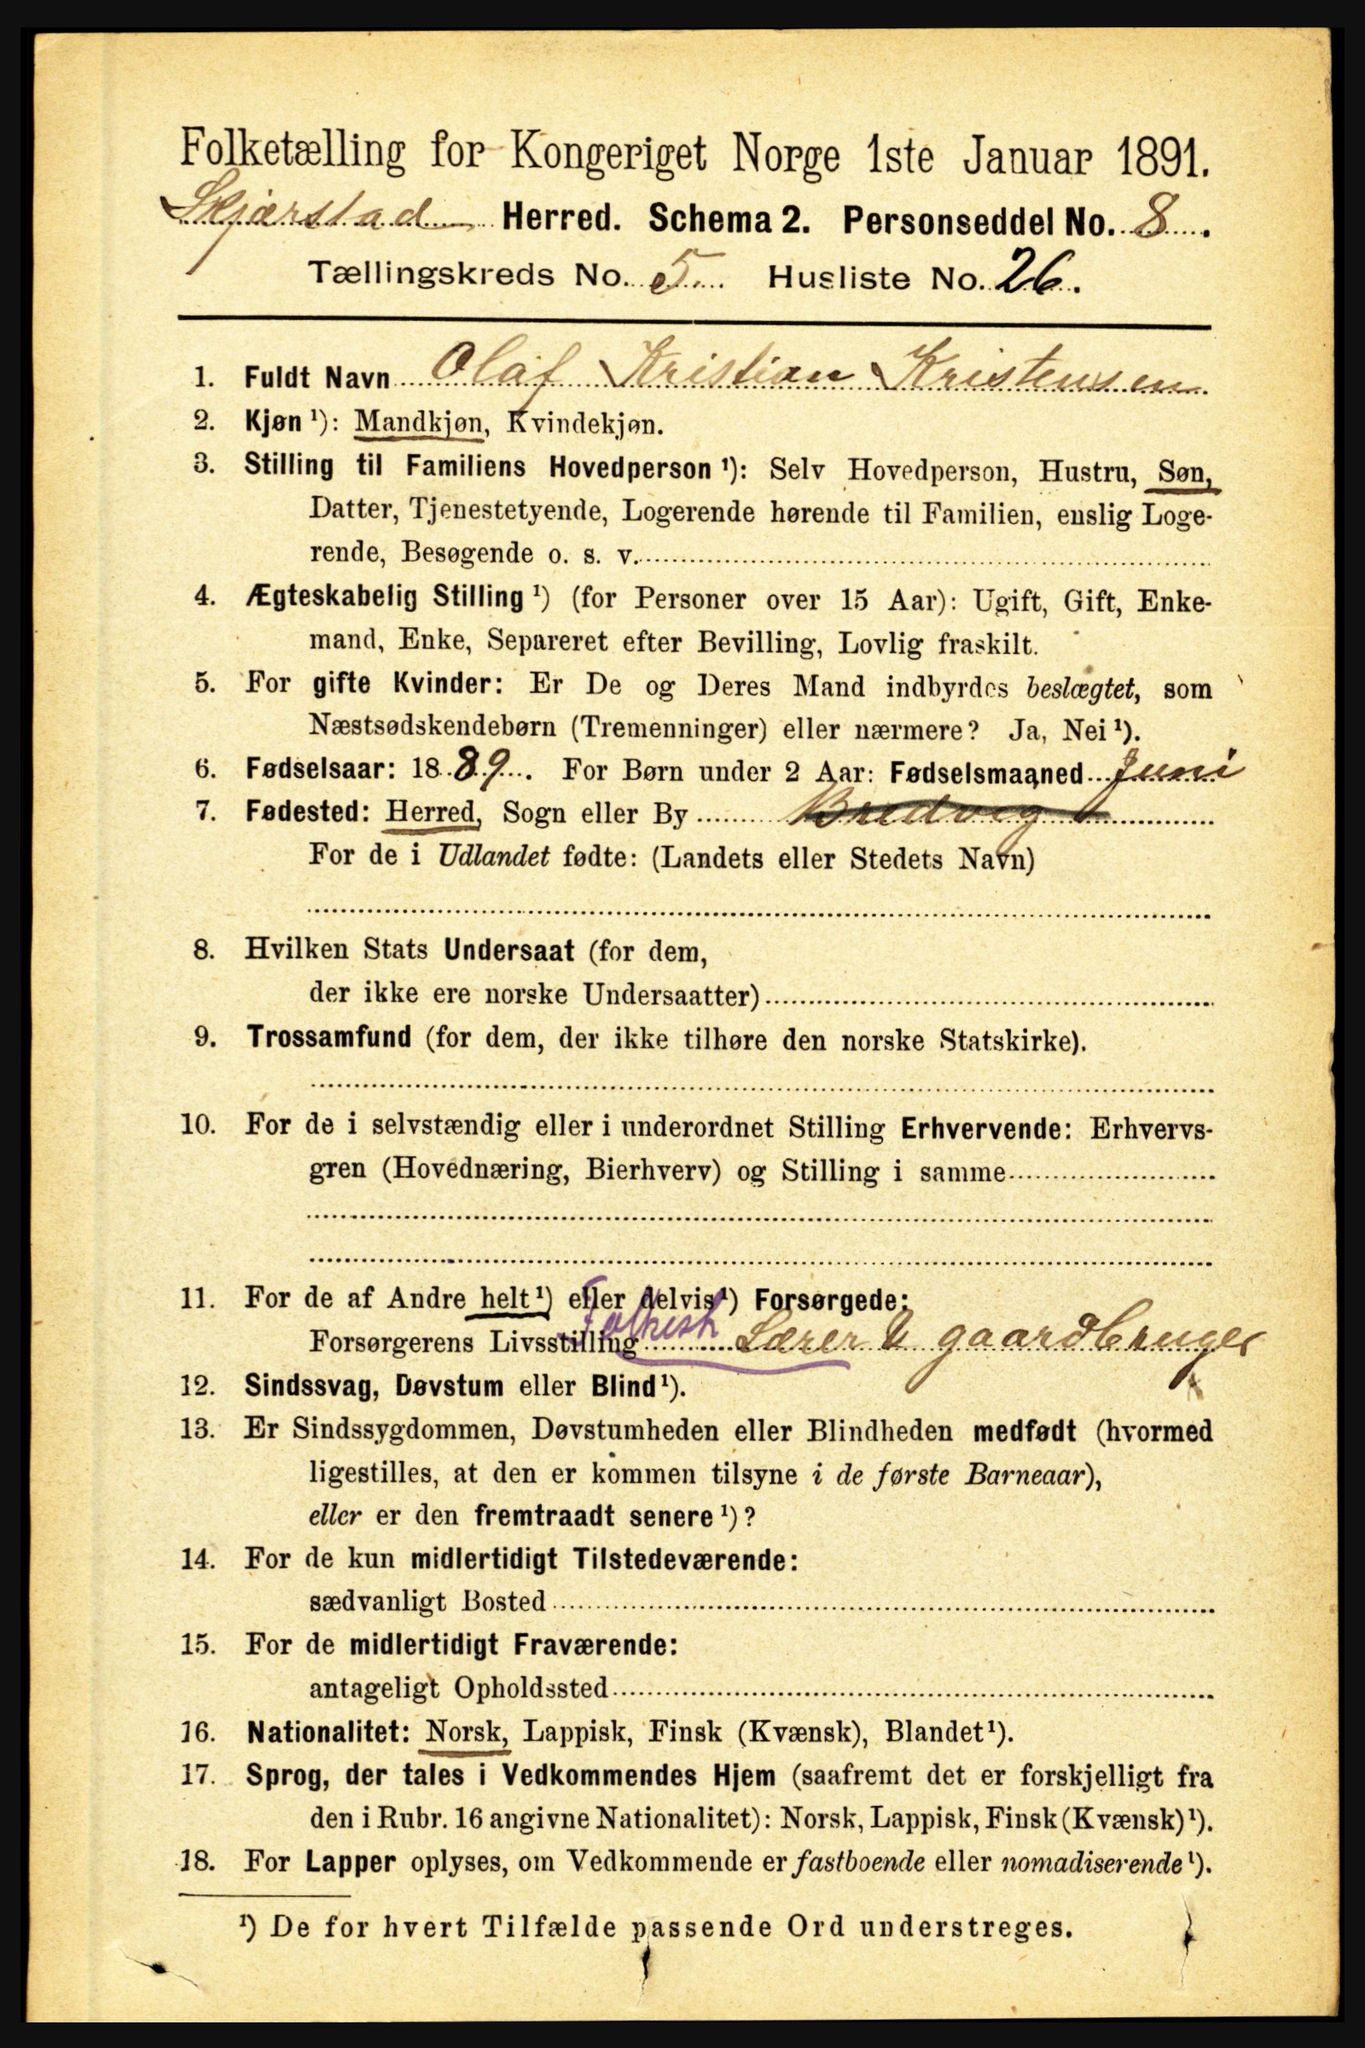 Folketælling for Kongeriget Norge 1ste Januar 1891.
Skjærstad Herred. Schema 2. Personseddel No. 8.
Tællingskreds No. 5 Husliste No. 26.
1. Fuldt Navn Olaf Kristian Kristensen
2. Kjøn ¹): Mandkjøn, Kvindekjøn.
3. Stilling til Familiens Hovedperson ¹): Selv Hovedperson, Hustru, Søn,
Datter, Tjenestetyende, Logerende hørende til Familien, enslig Loge-
rende, Besøgende o. s. v.
4. Ægteskabelig Stilling ¹) (for Personer over 15 Aar): Ugift, Gift, Enke-
mand, Enke, Separeret efter Bevilling, Lovlig fraskilt.
5. For gifte Kvinder: Er De og Deres Mand indbyrdes beslægtet, som
Næstsødskendebørn (Tremenninger) eller nærmere? Ja, Nei ¹).
6. Fødselsaar: 1889. For Børn under 2 Aar: Fødselsmaaned Juni
7. Fødested: Herred, Sogn eller By Bredvig
For de i Udlandet fødte: (Landets eller Stedets Navn)
8. Hvilken Stats Undersaat (for dem,
der ikke ere norske Undersaatter)
9. Trossamfund (for dem, der ikke tilhøre den norske Statskirke).
10. For de i selvstændig eller i underordnet Stilling Erhvervende: Erhvervs-
gren (Hovednæring, Bierhverv) og Stilling i samme
11. For de af Andre helt ¹) eller delvis ¹) Forsørgede:
Forsørgerens Livsstilling Folkesk Lærer & gaardbruger
12. Sindssvag, Døvstum eller Blind ¹).
13. Er Sindssygdommen, Døvstumheden eller Blindheden medfødt (hvormed
ligestilles, at den er kommen tilsyne i de første Barneaar),
eller er den fremtraadt senere ¹)?
14. For de kun midlertidigt Tilstedeværende:
sædvanligt Bosted
15. For de midlertidigt Fraværende:
antageligt Opholdssted
16. Nationalitet: Norsk, Lappisk, Finsk (Kvænsk), Blandet ¹).
17. Sprog, der tales i Vedkommendes Hjem (saafremt det er forskjelligt fra
den i Rubr. 16 angivne Nationalitet): Norsk, Lappisk, Finsk (Kvænsk) ¹).
18. For Lapper oplyses, om Vedkommende er fastboende eller nomadiserende ¹).
¹) De for hvert Tilfælde passende Ord understreges.